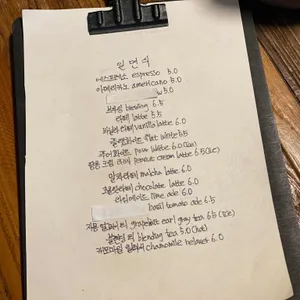 에스프레소 espresso 5.0
아메리카노 americano 5.0
5.0
브루잉 brewing 6.5
라떼 latte 5.5
바닐라라떼 vanilla latte 6.0
플랫화이트 flat white 5.5
화이트 white 6.0 (Ice)
크림 라떼 peanut cream latte 6.5 (Ice)
말차라떼 matcha latte 6.0
초콜릿라떼 chocolate latte 6.0
라임에이드 lime ade 6.0
basil tomato ade 6.5
자몽 얼그레이 티 grapefruit earl gray tea 6.5 (Ice)
블렌딩 티 blending tea 5.0 (hot)
카모마일 릴렉서 chamomile relaxer 6.0